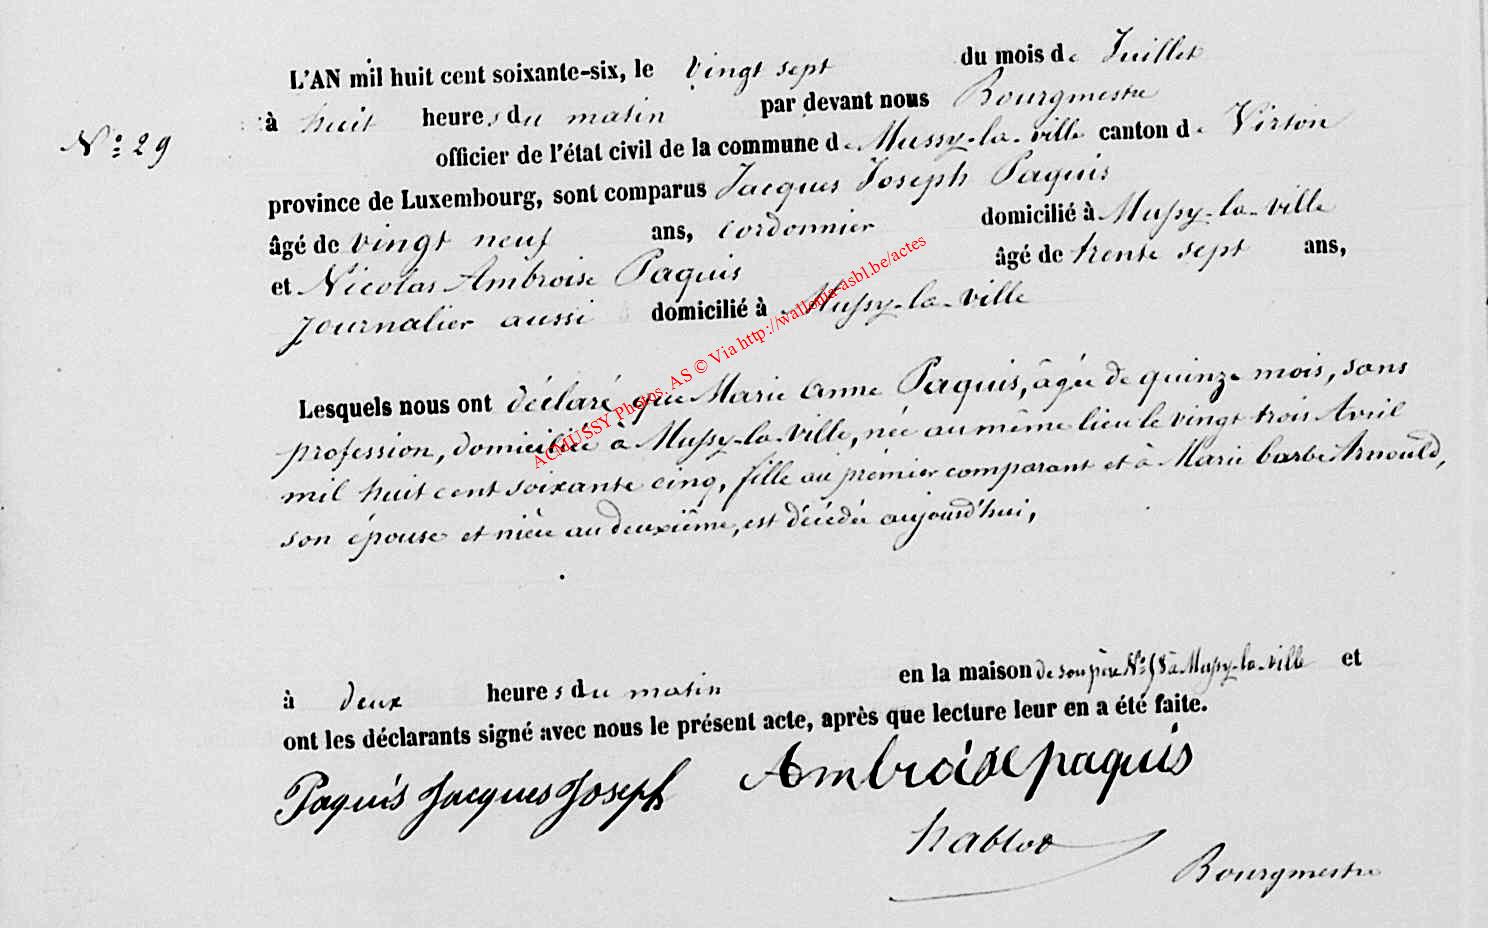 L'AN mil huit cent soixante-six, le vingt sept du mois de Juillet
à huit heures du matin par devant nous Bourgmestre
Nº 29
officier de l'état civil de la commune de Mussy-la-ville canton de Virton
province de Luxembourg, sont comparus Jacques Joseph Paquis
âgé de vingt neuf ans, cordonnier domicilié à Mussy-la-ville
et Nicolas Ambroise Paquis âgé de trente sept ans,
journalier aussi domicilié à Mussy-la-ville
Lesquels nous ont déclaré que Marie Anne Paquis, âgée de quinze mois, sans
profession, domiciliée à Mussy-la-ville, née au même lieu le vingt trois Avril
mil huit cent soixante cinq, fille au premier comparant et à Marie barbe Arnould,
son épouse et nièce au deuxième, est décédée aujourd'hui,
à deux heures du matin en la maison de son père Nº 58 à Mussy-la-ville et
ont les déclarants signé avec nous le présent acte, après que lecture leur en a été faite.
Paquis Jacques Joseph Ambroise paquis
habloт
Bourgmestre
ACMUSSY Photos. AS © Via http://wallonia-asbl.be/actes